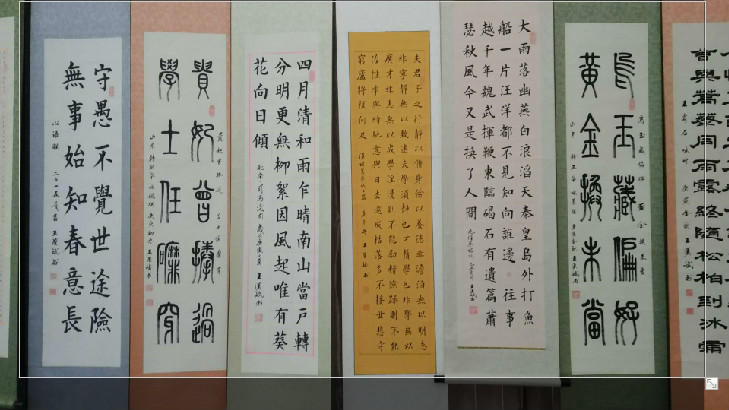 曾與蒿藜同雨露終隨松柏到冰霜
烏玉藏偏好
黃金換未當
大雨落幽燕白浪滔天秦皇島外打魚
船一片汪洋都不見知向誰邊往事
越千年魏武揮鞭東臨碣石有遺篇蕭
瑟秋風今又是換了人間
夫君子之行靜以修身儉以養德非澹泊無以明志
非寧靜無以致遠夫學須靜也才須學也非學無以
廣才非志無以成學淫慢則不能勵精險躁則不能
治性年與時馳意與日去遂成枯落多不接世悲守
窮廬將復何及
四月清和雨乍晴南山當戶轉
分明更無柳絮因風起唯有葵
花向日傾
貴妃曾捧過
學士任磨穿
守愚不覺世途險
無事始知春意長